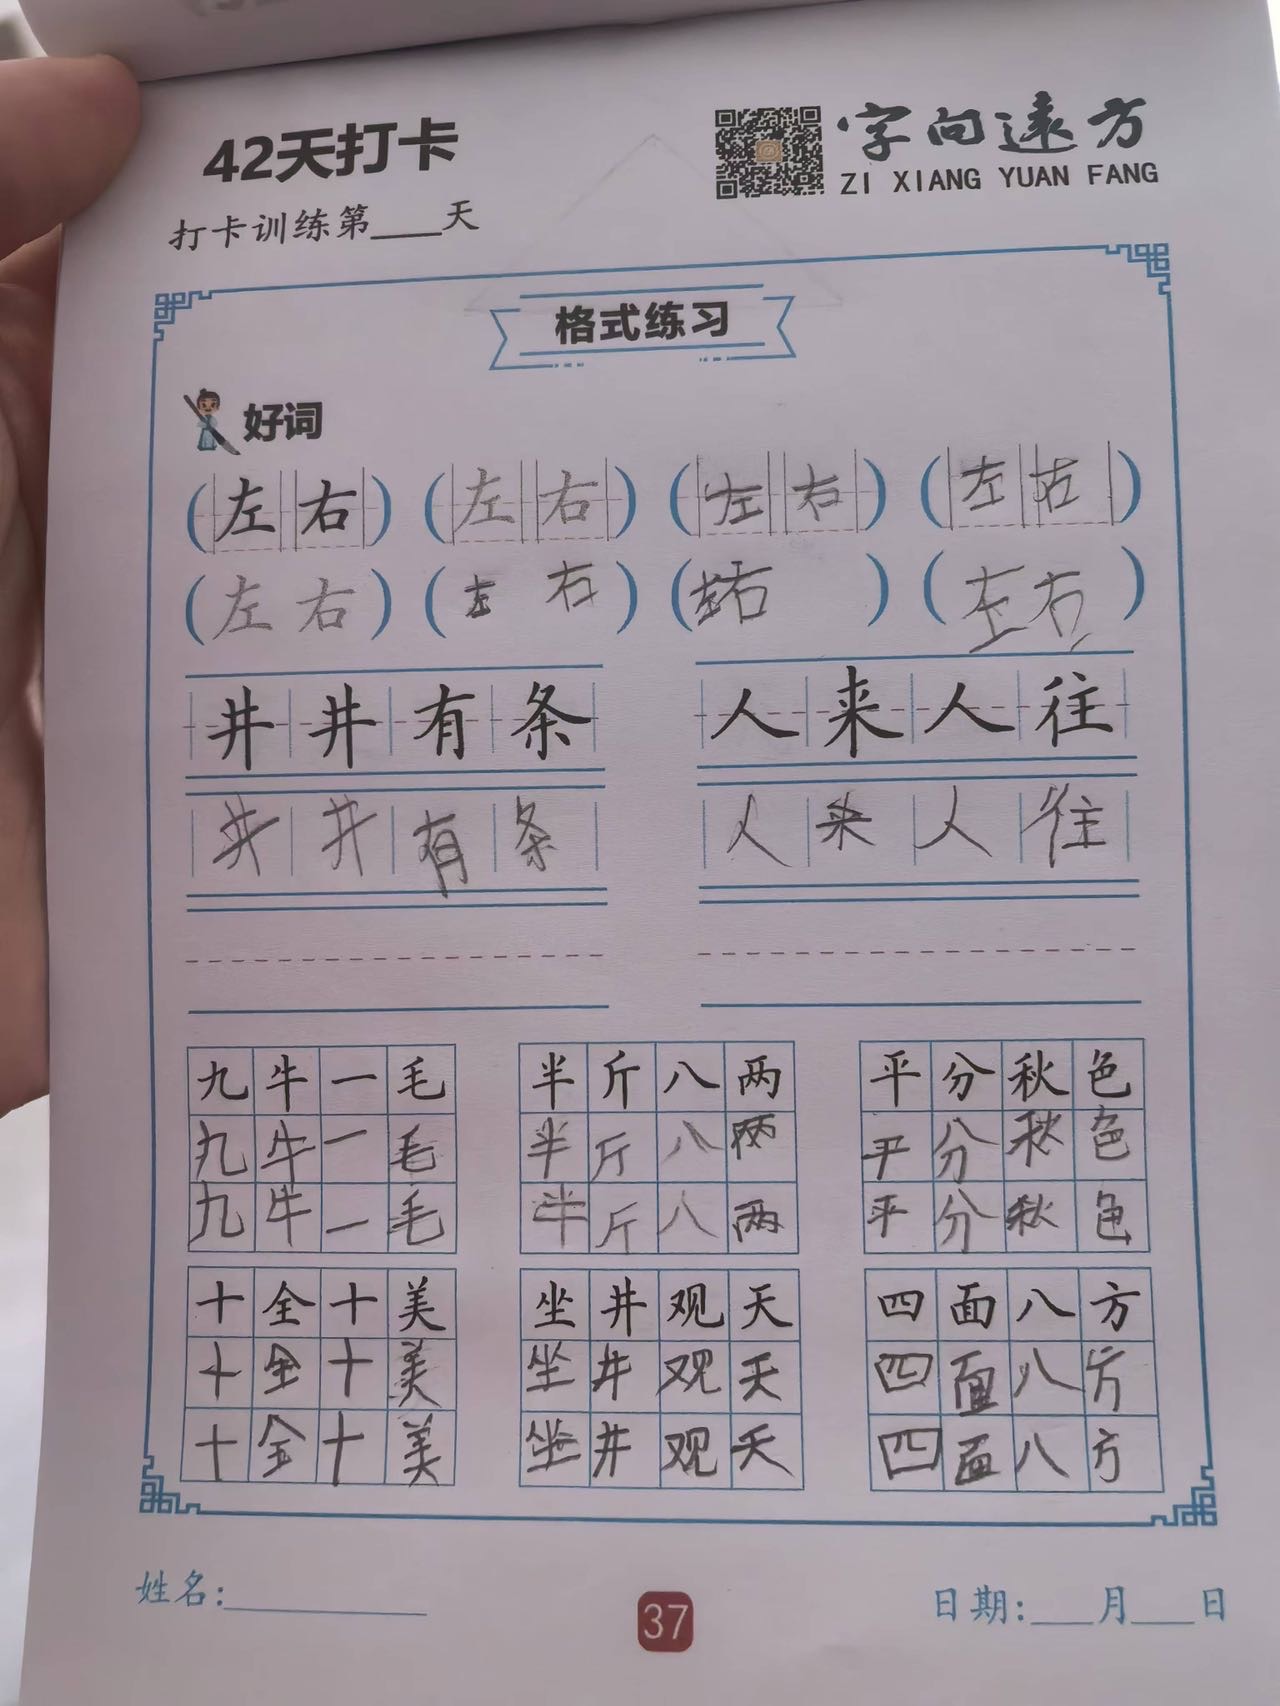 42天打卡
字向远方
ZI XIANG YUAN FANG
打卡训练第____天
格式练习
好词
(左右) (左右) (左右) (左右)
(左右) (左右) (左右) (左右)
井井有条 人来人往
井井有条 人来人往
九牛一毛 半斤八两 平分秋色
九牛一毛 半斤八两 平分秋色
九牛一毛 半斤八两 平分秋色
十全十美 坐井观天 四面八方
十全十美 坐井观天 四面八方
十全十美 坐井观天 四面八方
姓名:____________
37
日期:____月____日